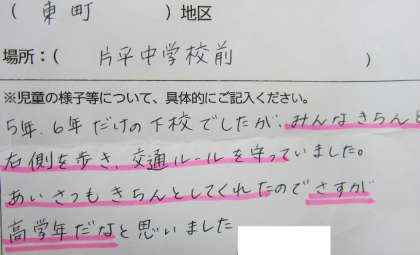 (東町)地区
場所:(片平中学校前)
※児童の様子等について、具体的にご記入ください。
5年、6年だけの下校でしたが、みんなきちんと
右側を歩き、交通ルールを守っていました。
あいさつもきちんとしてくれたのでさすが
高学年だなと思いました